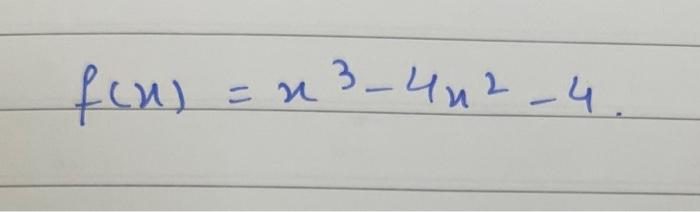 f(x) = x³ - 4x² - 4.